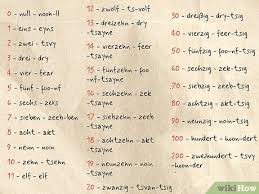 0 - null - nooh-ll
1 - eins - eyns
2 - zwei - tsvy
3 - drei - dry
4 - vier - fear
5 - fünf - foo-nf
6 - sechs - zeks
7 - sieben - zeeb-ben
8 - acht - akt
9 - neun - noin
10 - zehn - tsehn
11 - elf - elf
12 - zwolf - ts-volf
13 - dreizehn - dry
- tsayne
14 - vierzehn - feer
- tsayne
15 - fünfzehn - foo-nf
- tsayne
16 - sechzehn - zek
- tsayne
17 - siebzehn - zeeb
- tsayne
18 - achtzehn - akt
- tsayne
19 - neunzehn - noin
- tsayne
20 - zwanzig - tsvan-tsig
30 - dreißig - dry-tsig
40 - vierzig - feer-tsig
50 - fünfzig - foo-nf-tsig
60 - sechzig - zek-tsig
70 - siebzig - zeeb-tsig
80 - achtzig - akt-tsig
90 - neunzig - noin-tsig
100 - hundert - hoon-dert
200 - zweihundert - tsvy-hoon-dert
wikiHow